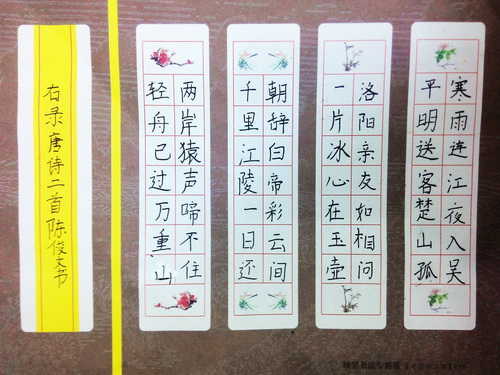 寒雨连江夜入吴
平明送客楚山孤
洛阳亲友如相问
一片冰心在玉壶
朝辞白帝彩云间
千里江陵一日还
两岸猿声啼不住
轻舟已过万重山
右录唐诗二首陈俊文书